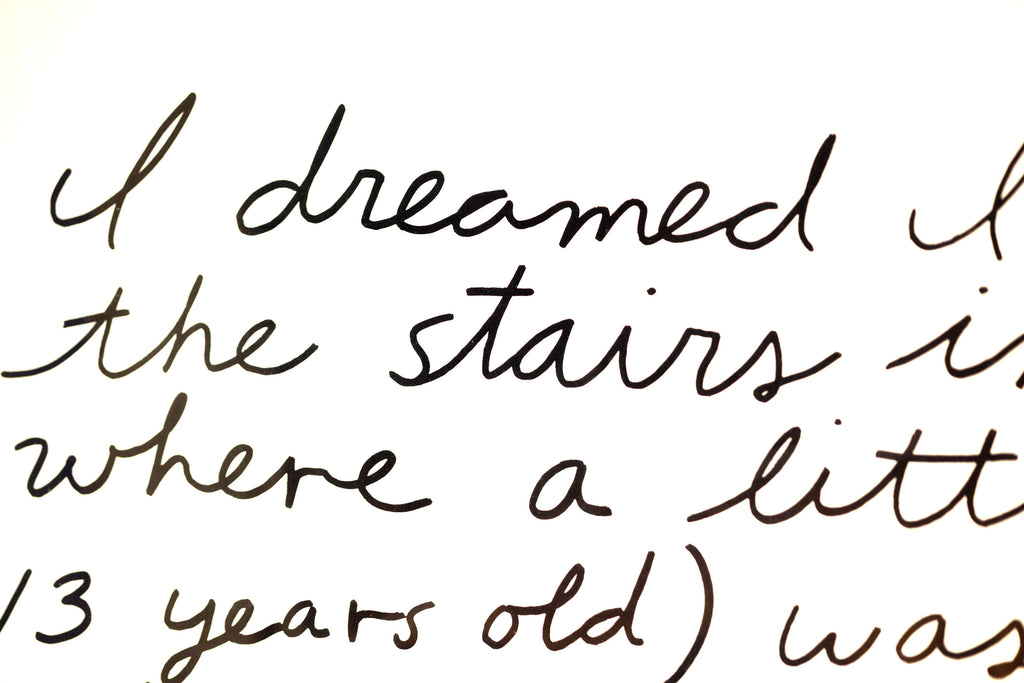 I dreamed I
the stairs i
where a litt
13 years old) was